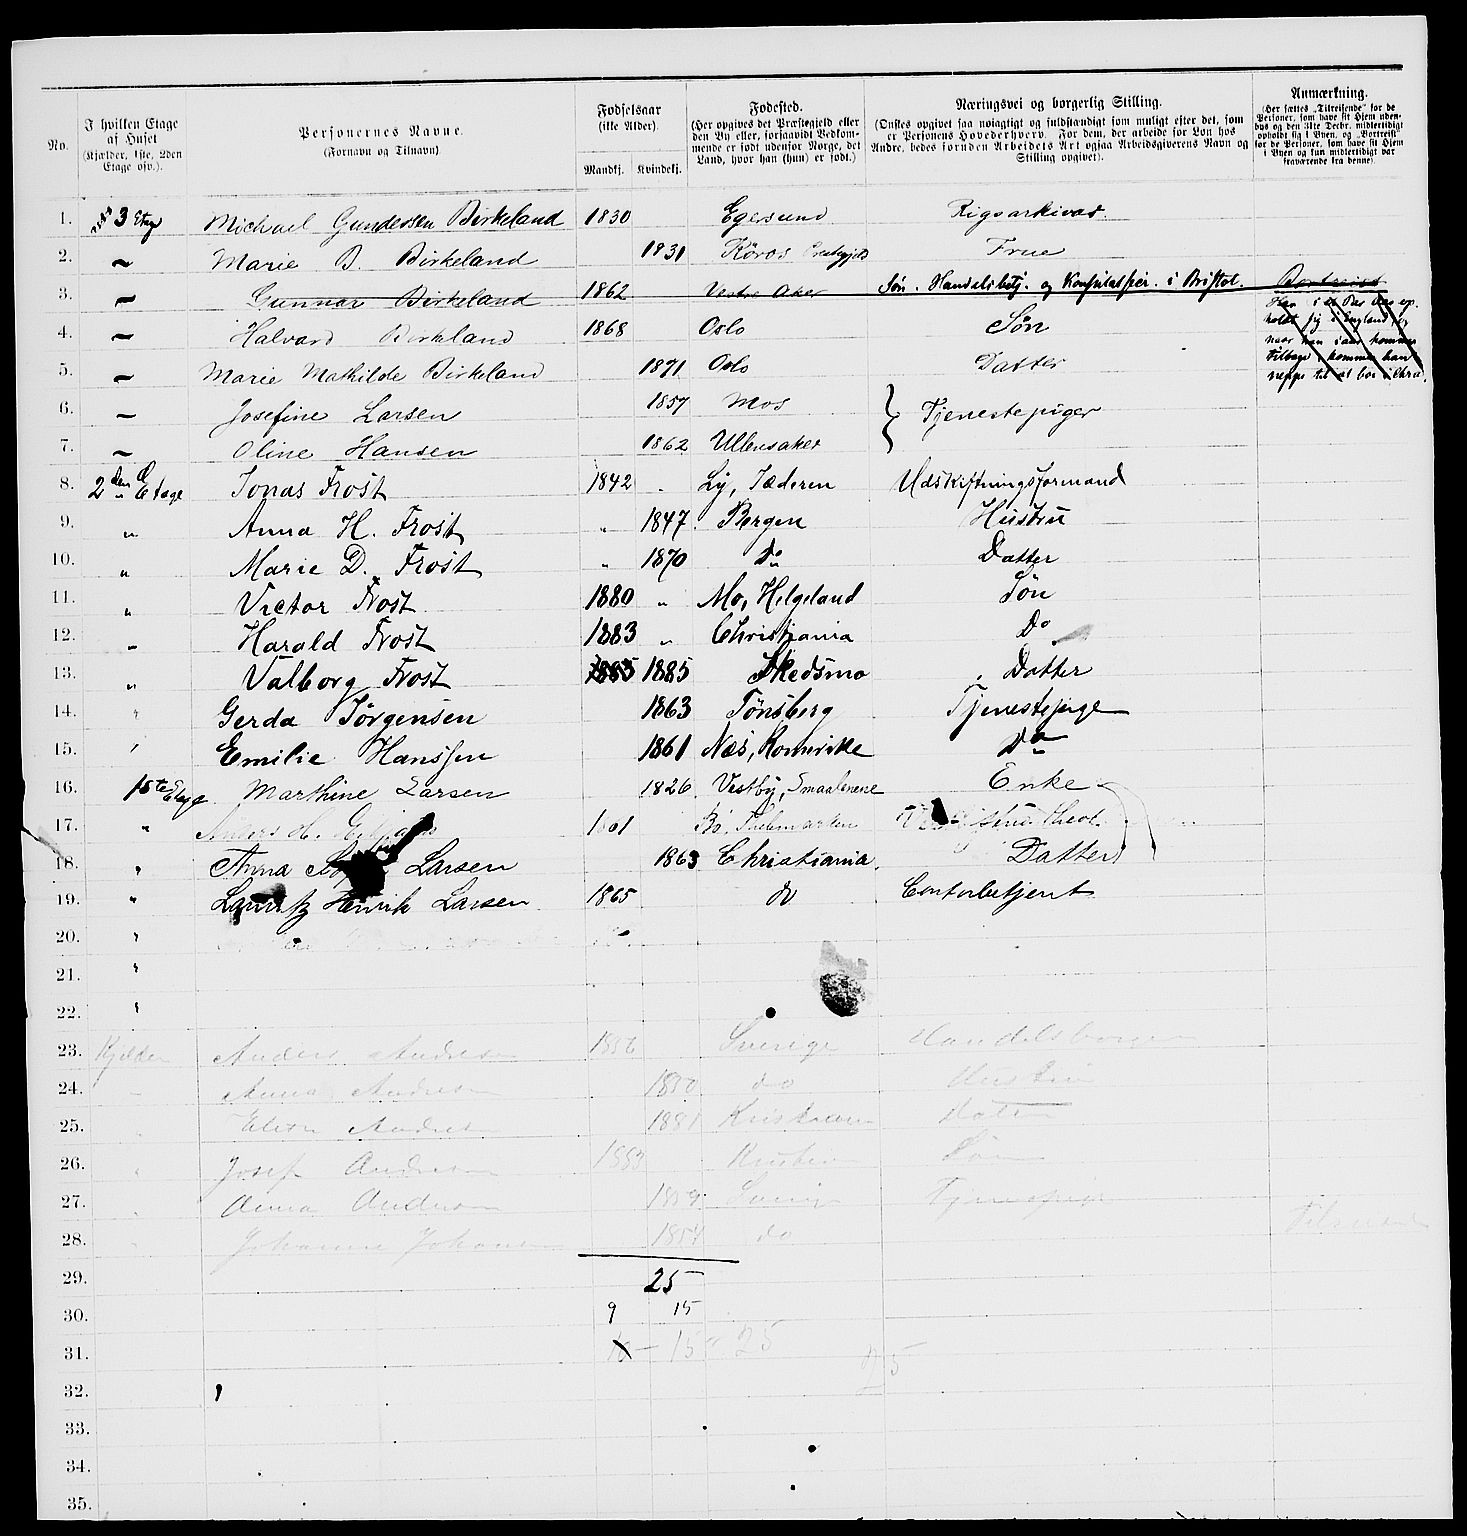 No.
I hvilken Etage af Huset (Kjælder, 1ste, 2den Etage osv.).
Personernes Navne. (Fornavn og Tilnavn).
Fødselsaar (ikke Alder). Mandkj. Kvindekj.
Fødested. (Her opgives det Præstegjeld eller den By eller, forsaavidt Vedkommende er født udenfor Norge, det Land, hvor han (hun) er født.)
Næringsvei og borgerlig Stilling. (Ønskes opgivet saa nøiagtigt og fuldstændigt som muligt efter det, som er Personens Hovederhverv. For dem, der arbeide for Løn hos Andre, bedes foruden Arbeidets Art ogsaa Arbeidsgiverens Navn og Stilling opgivet).
Anmærkning. (Her sættes „Tilreisende" for de Personer, som have sit Hjem udenbys og den 31te Decbr. midlertidigt opholdt sig i Byen, og „Bortreist" for de Personer, som have sit Hjem i Byen og kun midlertidigt var fraværende fra denne).
1. 3 Etag Michael Gundersen Birkeland 1830 Egersund Rigsarkivar
2. " Marie B. Birkeland 1831 Röros Frue
3. " Gunnar Birkeland 1862 Vestre Aker Søn. Handelsbetj. og i Bristol. Bortreist
Har i et Par Aar op-
holdt sig i England, og
naar han iaar kommer
tilbage, kommer han
neppe til at bo i Chra.
4. " Halvard Birkeland 1868 Oslo Søn
5. " Marie Mathilde Birkeland 1871 Oslo Datter
6. " Josefine Larsen 1857 Mos } Tjenestepiger
7. " Oline Hansen 1862 Ullensaker
8. 2den Etage Jonas Frost 1842 Ly, Jæderen Udskiftningsformand
9. " Anna H. Frost " 1847. Bergen Hustru
10. " Marie D. Frost " 1870 Do Datter
11. " Victor Frost 1880 " Mo, Helgeland Søn
12. " Harald Frost 1883 " Christiania Do
13. " Valborg Frost 1885 1885 Skedsmo Datter
14. " Gerda Jørgensen 1863 Tønsberg Tjenestepige
15. " Emilie Hanssen 1861 Næs, Romerike Do
16. 1ste Etage Marthine Larsen 1826 Vestby, Smaalenene Enke
17. " Anders H. Bö, Thelemarken
18. " Anna Larsen 1863 Christiania. Datter
19. " Lauritz Henrik Larsen 1865 do Contorbetjent
20. "
21. "
22. "
23. Kjelder Anders Andresen 1856 Sverige
24. Anna Andresen 1850 do Hustru
25. 1881 Datter
26. Josef Andresen 1883 Søn
27. Anna Andersen 1859
28. 1854 do
29. 25
30. 9 15
31. 10 - 15 = 25 25
32.
33.
34.
35.